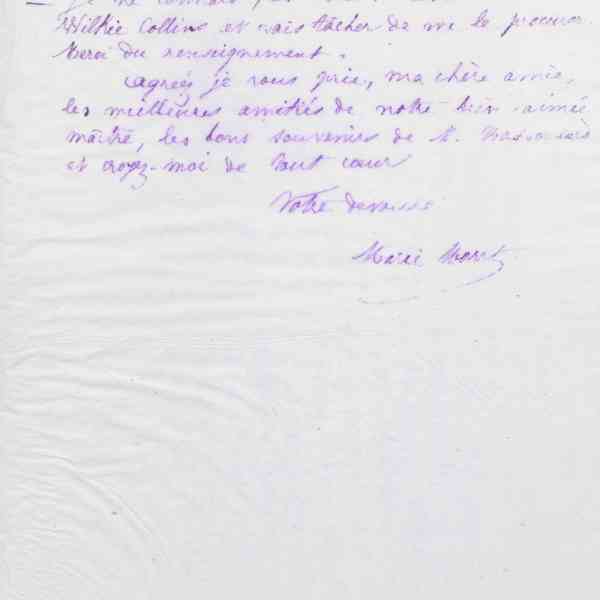 — je ne connais pas
Wilkie Collins et vais tâcher de me le procurer.
Merci du renseignement.
Agréez je vous prie, ma chère amie,
les meilleures amitiés de notre bien-aimé
maître, les bons souvenirs de M.
et croyez-moi de tout cœur
Votre dévouée
Marie Moret